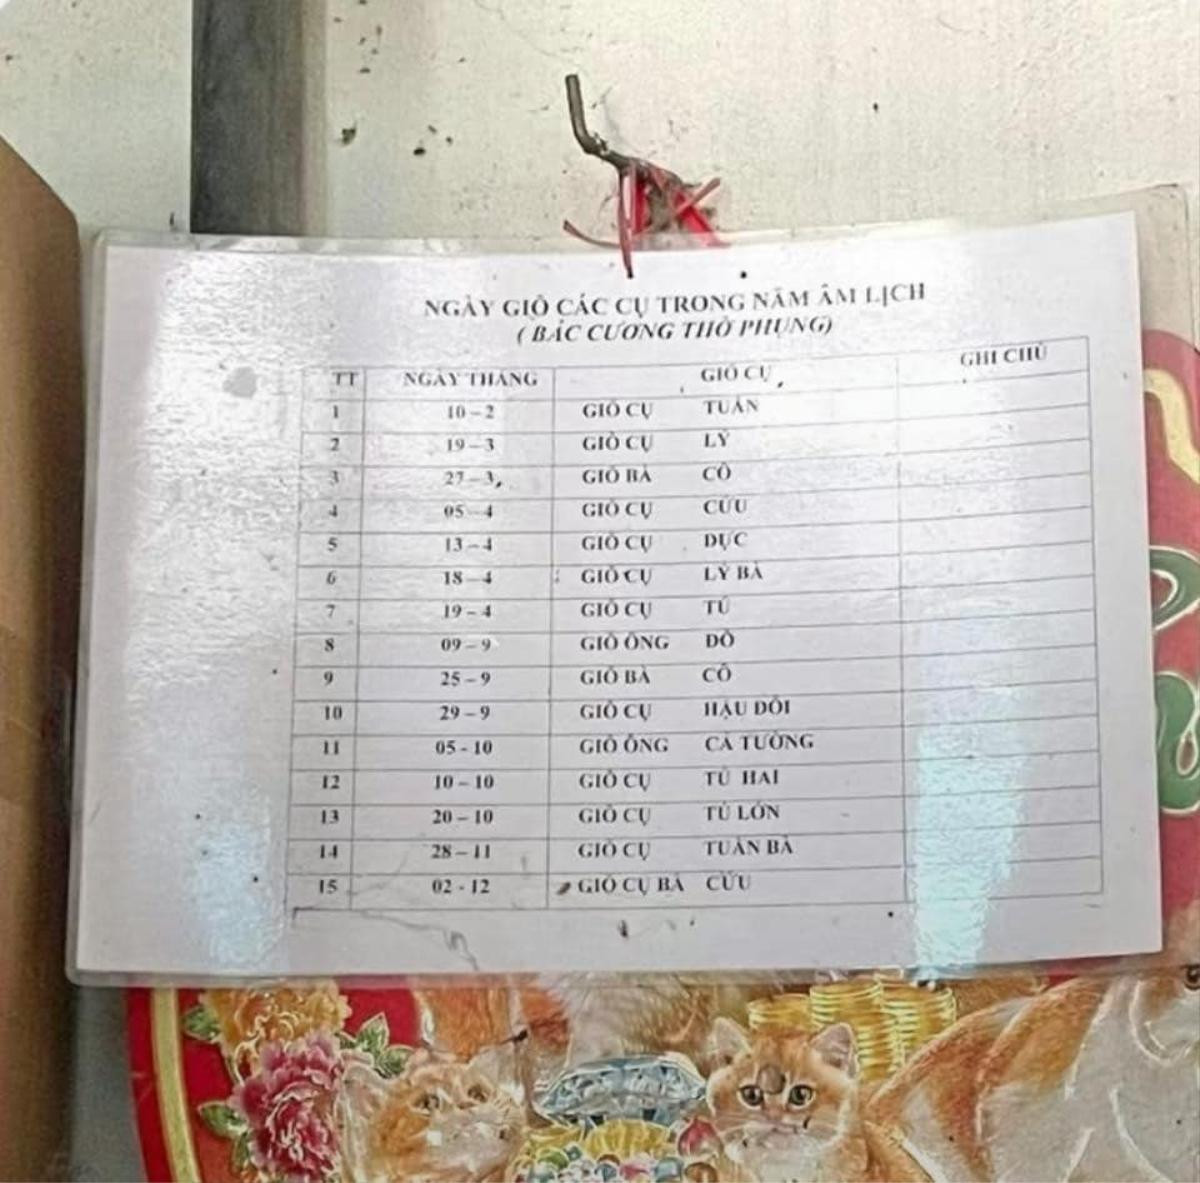 NGÀY GIỖ CÁC CỤ TRONG NĂM ÂM LỊCH
( BÁC CƯƠNG THỜ PHỤNG)
TT NGÀY THÁNG GIỖ CỤ GHI CHÚ
1 10 – 2 GIỖ CỤ TUẦN
2 19 – 3 GIỖ CỤ LÝ
3 27 – 3 GIỖ BÀ CÔ
4 05 – 4 GIỖ CỤ CỬU
5 13 – 4 GIỖ CỤ DỰC
6 18 – 4 GIỖ CỤ LÝ BÀ
7 19 – 4 GIỖ CỤ TÚ
8 09 – 9 GIỖ ÔNG ĐÔ
9 25 – 9 GIỖ BÀ CÔ
10 29 – 9 GIỖ CỤ HẬU ĐÔI
11 05 - 10 GIỖ ÔNG CẢ TƯỜNG
12 10 – 10 GIỖ CỤ TÚ HAI
13 20 – 10 GIỖ CỤ TÚ LỚN
14 28 – 11 GIỖ CỤ TUẦN BÀ
15 02 - 12 GIỖ CỤ BÀ CỬU